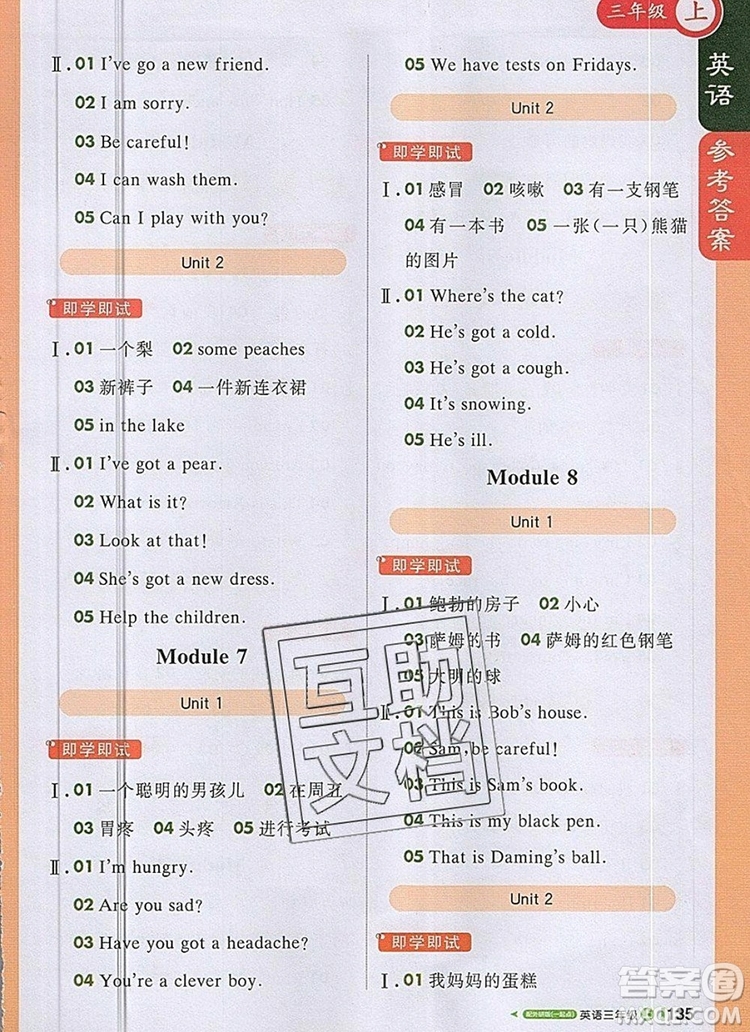 三年级 上
英语
参考答案
Ⅱ.01 I've go a new friend.
02 I am sorry.
03 Be careful!
04 I can wash them.
05 Can I play with you?
Unit 2
即学即试
Ⅰ.01 一个梨 02 some peaches
03 新裤子 04 一件新连衣裙
05 in the lake
Ⅱ.01 I've got a pear.
02 What is it?
03 Look at that!
04 She's got a new dress.
05 Help the children.
Module 7
Unit 1
即学即试
Ⅰ.01 一个聪明的男孩儿 02 在周五
03 胃疼 04 头疼 05 进行考试
Ⅱ.01 I'm hungry.
02 Are you sad?
03 Have you got a headache?
04 You're a clever boy.
05 We have tests on Fridays.
Unit 2
即学即试
Ⅰ.01 感冒 02 咳嗽 03 有一支钢笔
04 有一本书 05 一张(一只)熊猫
的图片
Ⅱ.01 Where's the cat?
02 He's got a cold.
03 He's got a cough.
04 It's snowing.
05 He's ill.
Module 8
Unit 1
即学即试
Ⅰ.01 鲍勃的房子 02 小心
03 萨姆的书 04 萨姆的红色钢笔
05 大明的球
Ⅱ.01 This is Bob's house.
02 Sam, be careful!
03 This is Sam's book.
04 This is my black pen.
05 That is Daming's ball.
Unit 2
即学即试
Ⅰ.01 我妈妈的蛋糕
互助
文档
配外研版(一起点) 英语三年级 135
答案圈